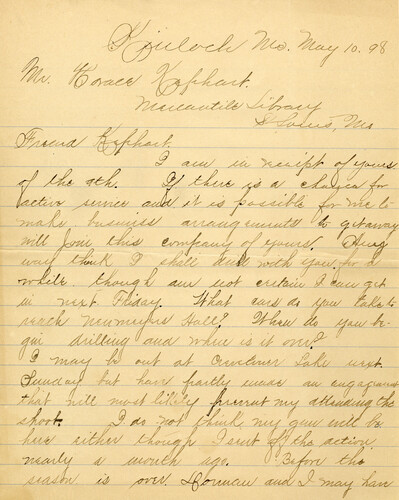 Kinloch Mo. May 10. 98
Mr. Horace Kephart.
Mercantile Library
St Louis, Mo
Friend Kephart.
I am in receipt of yours
of the 9th. If there is a chance for
active service and it is possible for me to
make business arrangements to get away
will join this company of yours. Any
way think I shall drill with you for a
while though am not certain I can get
in next Friday. What cars do you take to
reach Neumeyers Hall? When do you be-
gin drilling and when is it over?
I may be out at Creve Coeur Lake next
Sunday but have partly made an engagement
that will most likely prevent my attending the
shoot. I do not think my gun will be
here either though I sent of the action
nearly a month ago. Before the
season is over Dorman and I may have